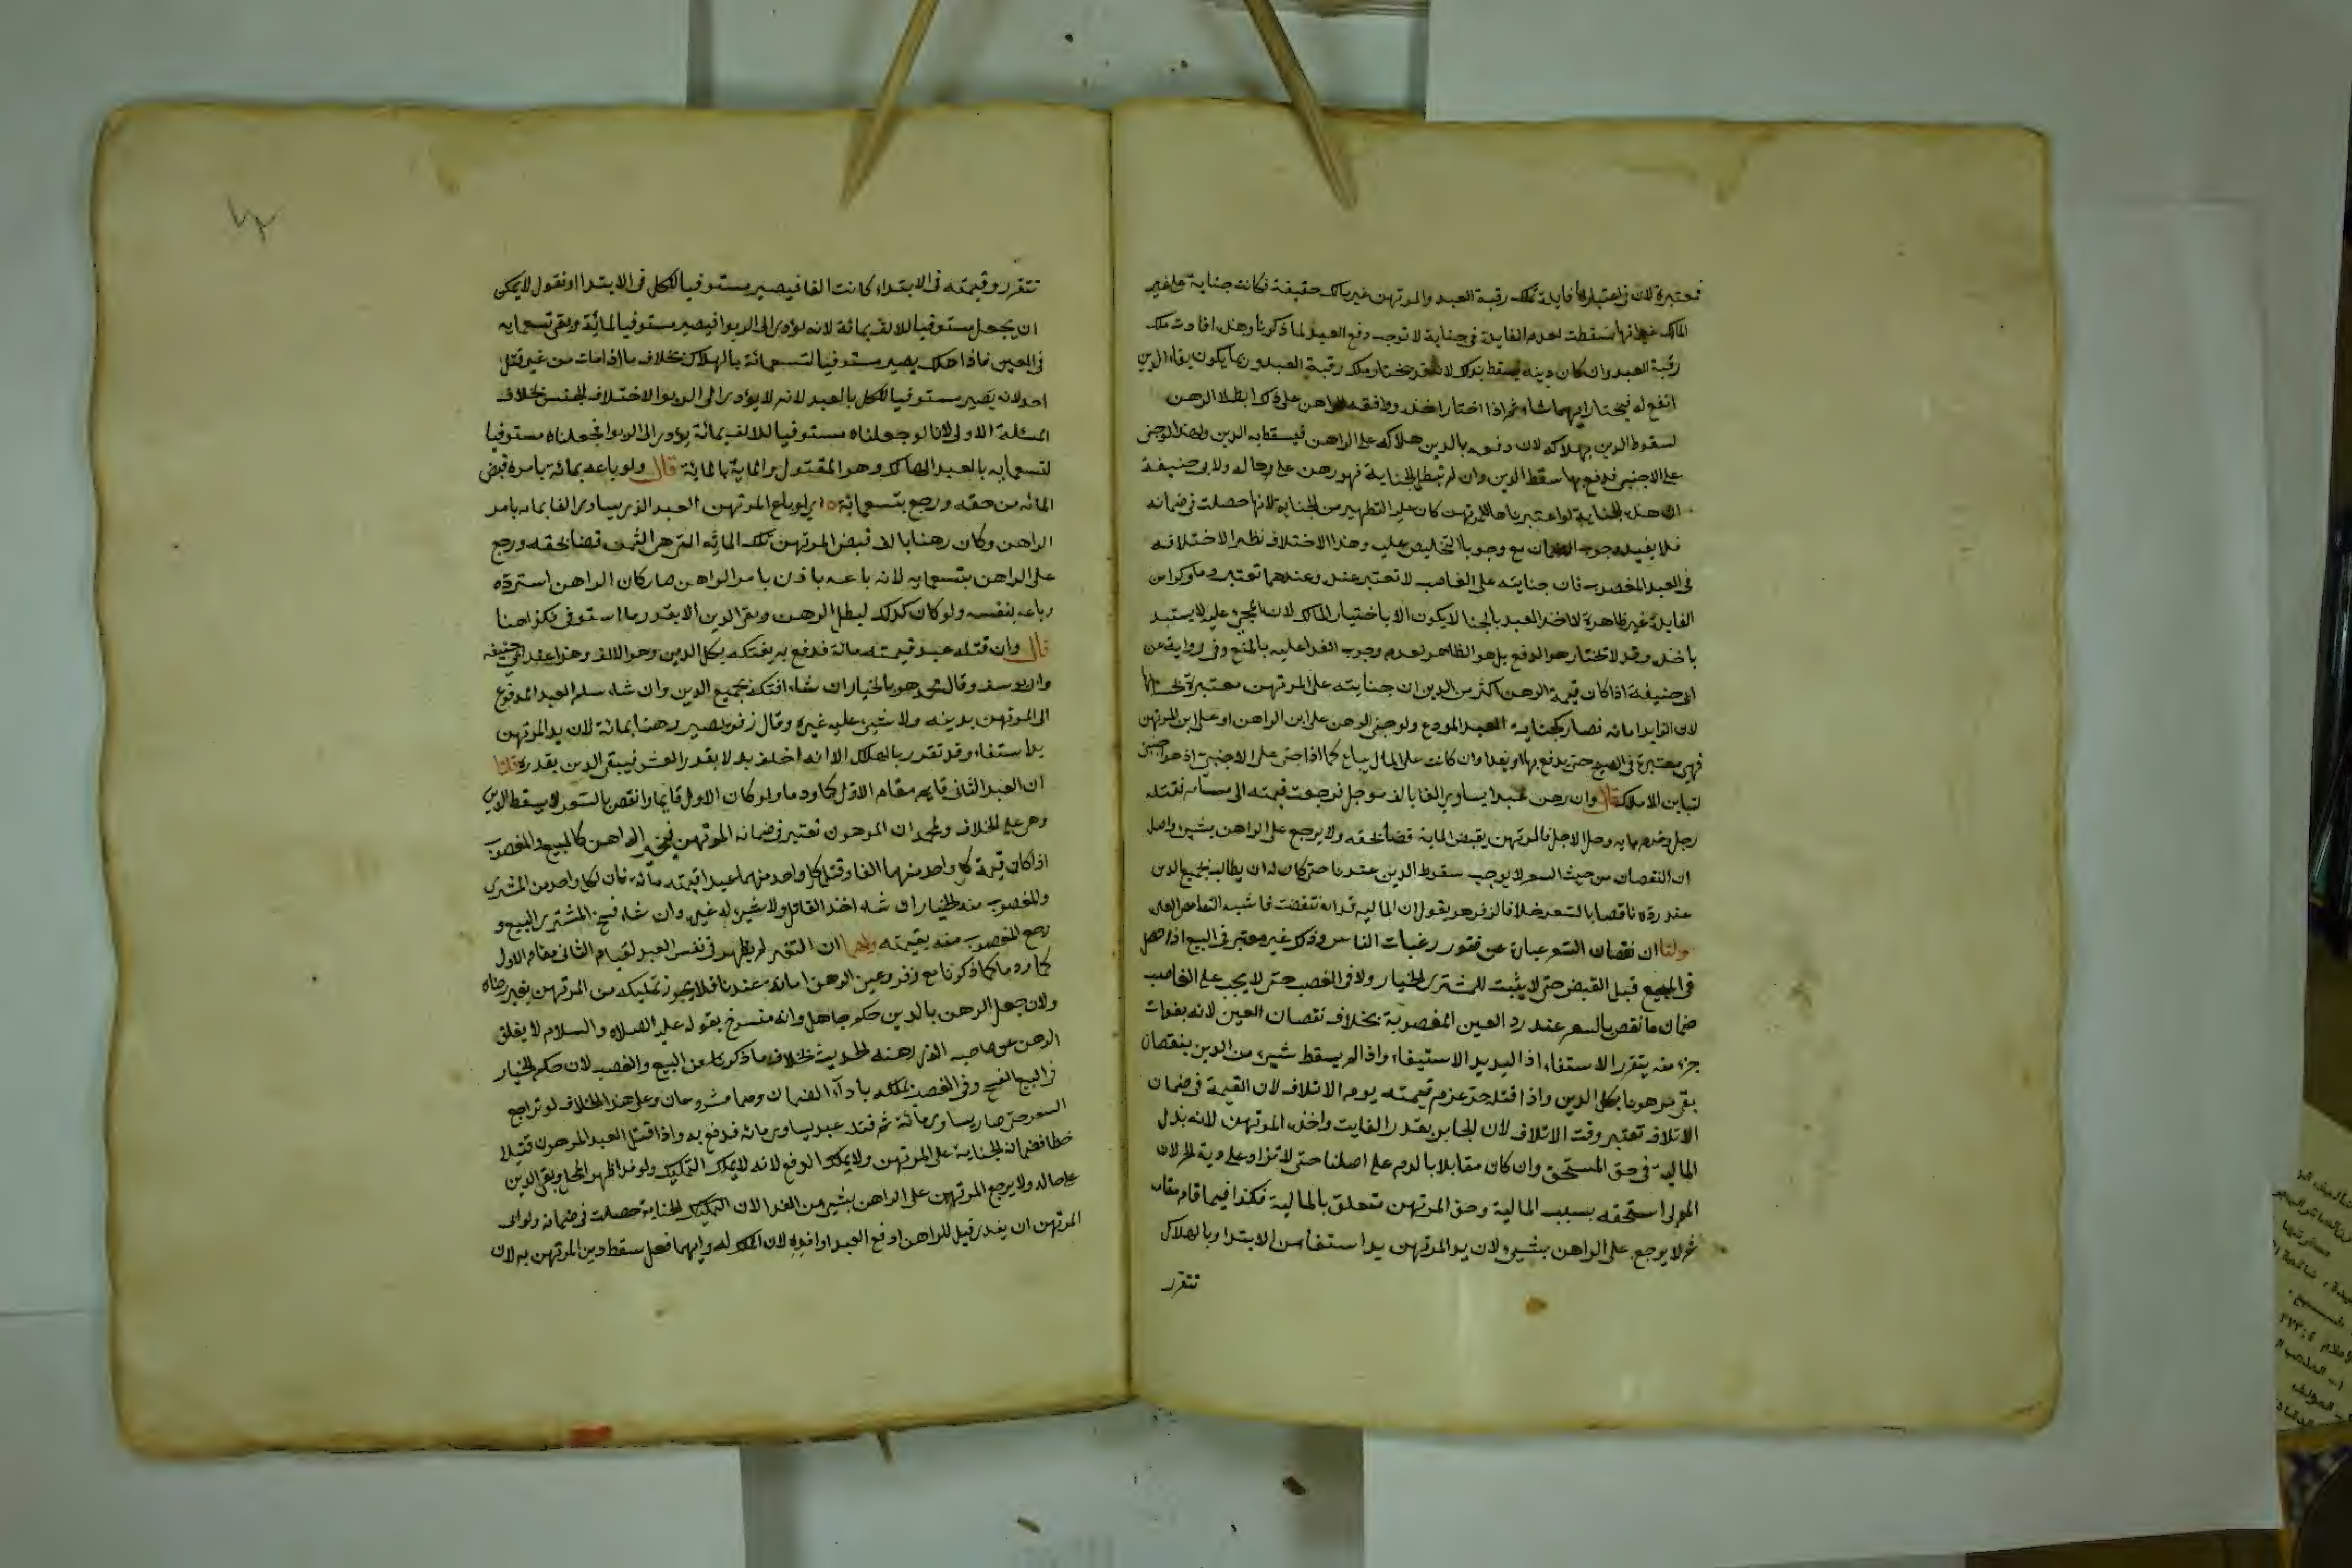 فمعتبرة لان في اعتبارها فايدة تملك رقبة العبد والمرتهن غير مالك حقيقة فكانت جناية على غير
المالك غير انها سقطت لعدم الفايدة في جناية لا توجب دفع العبد لما ذكرنا وهذا افادت ملك
رقبة العبد وان كان دينه يسقط بذلك لانه قد يختار ملك رقبة العبد وربما يكون بقاء الدين
انفع له فيختار ايهما شاء ثم اذا اختار اخذه ووافقه الراهن على ذلك ابطلا الرهن
لسقوط الدين بهلاكه لان دفعه بالدين هلاكه على الراهن فيسقط به الدين ولهذا لو جنى
على الاجنبي فدفع بها سقط الدين وان لم تبطل الجناية فهو رهن على حاله ولابي حنيفة
ان هذه الجناية لو اعتبرناها للمرتهن كان عليه التطهير من الجناية لانها حصلت في ضمانه
فلا يفيد وجوب الضمان مع وجوب التخليص عليه وهذا الاختلاف نظير الاختلاف
في العبد المغصوب فان جنايته على الغاصب لا تعتبر عنده وعندهما تعتبر وما ذكرا من
الفايدة غير ظاهرة لان اخذ العبد بالجنا لا يكون الا باختيار المالك لان المجني عليه لا يستبد
باخذه وقد لا يختار هو الدفع بل هو الظاهر لعدم وجوب الفدا عليه بالمنع وفي رواية عن
ابي حنيفة اذا كان قيمة الرهن اكثر من الدين ان جنايته على المرتهن معتبرة بحسابها
لان الزايد امانه فصار كجناية العبد المودع ولو جنى الرهن على ابن الراهن او على ابن المرتهن
فهي معتبرة في الصحيح حتى يدفع بها او يفدا وان كانت على المال يباع كما اذا جنى على الاجنبي اذ هو اجنبي
لتباين الاملاك قال وان رهن عبدا يساوي الفا بالف موجل فرجعت قيمته الى مائة فقتله
رجل وغرم مايه وحل الاجل فالمرتهن يقبض الماية قضا لحقه ولا يرجع على الراهن بشيء واصله
ان النقصان من حيث السعر لا يوجب سقوط الدين عندنا حتى كان له ان يطالب بجميع الدين
عند رده ناقصا بالسعر خلافا لزفر هو يقول ان المالية قد انتقصت فاشبه انتقاص العين
ولنا ان نقصان السعر عبارة عن فتور رغبات الناس وذلك غير معتبر في البيع اذا حصل
في المبيع قبل القبض حتى لا يثبت للمشتري الخيار ولا في الغصب حتى لا يجب على الغاصب
ضمان ما نقص بالسعر عند رد العين المغصوبة بخلاف نقصان العين لانه بفوات
جزء منه يتقرر الاستفاء اذ اليد يد الاستيفاء واذا لم يسقط شيء من الدين بنقصان
بقي مرهونا بكل الدين واذا قتله حر غرم قيمته يوم الاتلاف لان القيمة في ضمان
الاتلاف تعتبر وقت الاتلاف لان الجابر بقدر الفايت واخذه المرتهن لانه بدل
المالية في حق المستحق وان كان مقابلا بالدم على اصلنا حتى لا تزاد على دية الحر لان
المولى استحقه بسبب المالية وحق المرتهن متعلق بالمالية فكذا فيما قام مقامه
ثم لا يرجع على الراهن بشيء لان يد المرتهن يد استفا من الابتدا وبالهلاك
تتقرر
تتقرر وقيمته في الابتداء كانت الفا فيصير مستوفيا للكل في الابتدا او نقول لا يمكن
ان يجعل مستوفيا للالف بمائة لانه يؤدي الى الربوا فيصير مستوفيا المائة وبقي تسعمايه
في العين فاذا هلك يصير مستوفيا لتسعمائة بالهلاك بخلاف ما اذا مات من غير قتل
احد لانه يصير مستوفيا للكل بالعبد لانه لا يؤدي الى الربوا لاختلاف الجنس بخلاف
المسئلة الاولى لانا لو جعلناه مستوفيا للالف بمائة يؤدي الى الربوا فجعلناه مستوفيا
لتسعمايه بالعبد الهالك وهو المقتول والماية بالماية قال ولو باعه بمائة بامره قبض
المائه من حقه ورجع بتسعمائة اي لو باع المرتهن العبد الذي يساوي الفا بمايه بامر
الراهن وكان رهنا بالف قبض المرتهن تلك المائه التي هي الثمن قضا لحقه ورجع
على الراهن بتسعمايه لانه باعه باذن بامر الراهن صار كان الراهن استرده
وباعه بنفسه ولو كان كذلك ليبطل الرهن وبقي الدين الا بقدر ما استوفى فكذا هنا
قال وان قتله عبد قيمته مائة فدفع به يفتكه بكل الدين وهو الالف وهذا عند ابي حنيفه
وابي يوسف وقال محمد هو بالخيار ان شاء افتكه بجميع الدين وان شاء سلم العبد المدفوع
الى المرتهن بدينه ولا شيء عليه غيره وقال زفر يصير رهنا بمائة لان يد المرتهن
يد استفاء وقد تقرر بالهلاك الا انه اخلف بدلا بقدر العشر فيبقى الدين بقدره قلنا
ان العبد الثاني قايم مقام الاول لحما ودما ولو كان الاول قايما وانتقص بالسعر لا يسقط الدين
وهو على الخلاف ولمحمد ان المرهون تغير في ضمانه المرتهن فيخير الراهن كالمبيع والمغصوب
اذا كان قيمة كل واحد منهما الفا وقتل كل واحد منهما عبد قيمته مائة فان لكل واحد من المشتري
والمغصوب منه الخيار ان شاء اخذ القاتل ولا شيء له غيره وان شاء فسخ المشتري البيع و
رجع المغصوب منه بقيمته ولهما ان التغير لم يظهر في نفس العبد لقيام الثاني مقام الاول
لحما ودما كما ذكرنا مع زفر وعين الرهن امانة عندنا فلا يجوز تمليكه من المرتهن بغير رضاه
ولان جعل الرهن بالدين حكم جاهلي وانه منسوخ بقوله عليه الصلاه والسلام لا يغلق
الرهن عن صاحبه الذي رهنه الحديث بخلاف ما ذكرنا من البيع والغصب لان حكم الخيار
في البيع الفسخ وفي الغصب تملكه باداء الضمان وهما مشروعان وعلى هذا الخلاف لو تراجع
السعر حتى صار يساوي مائة ثم قتله عبد يساوي مائه فدفع به واذا قتل العبد المرهون قتيلا
خطا فضمان الجناية على المرتهن ولا يملك الدفع لانه لا يملك التمليك ولو فدا ظهر المحل وبقي الدين
على حاله ولا يرجع المرتهن على الراهن بشيء من الفدا لان الجناية حصلت في ضمانه ولو ابى
المرتهن ان يفدي قيل للراهن ادفع العبد او افده لان الملك له وايهما فعل سقط دين المرتهن به لان